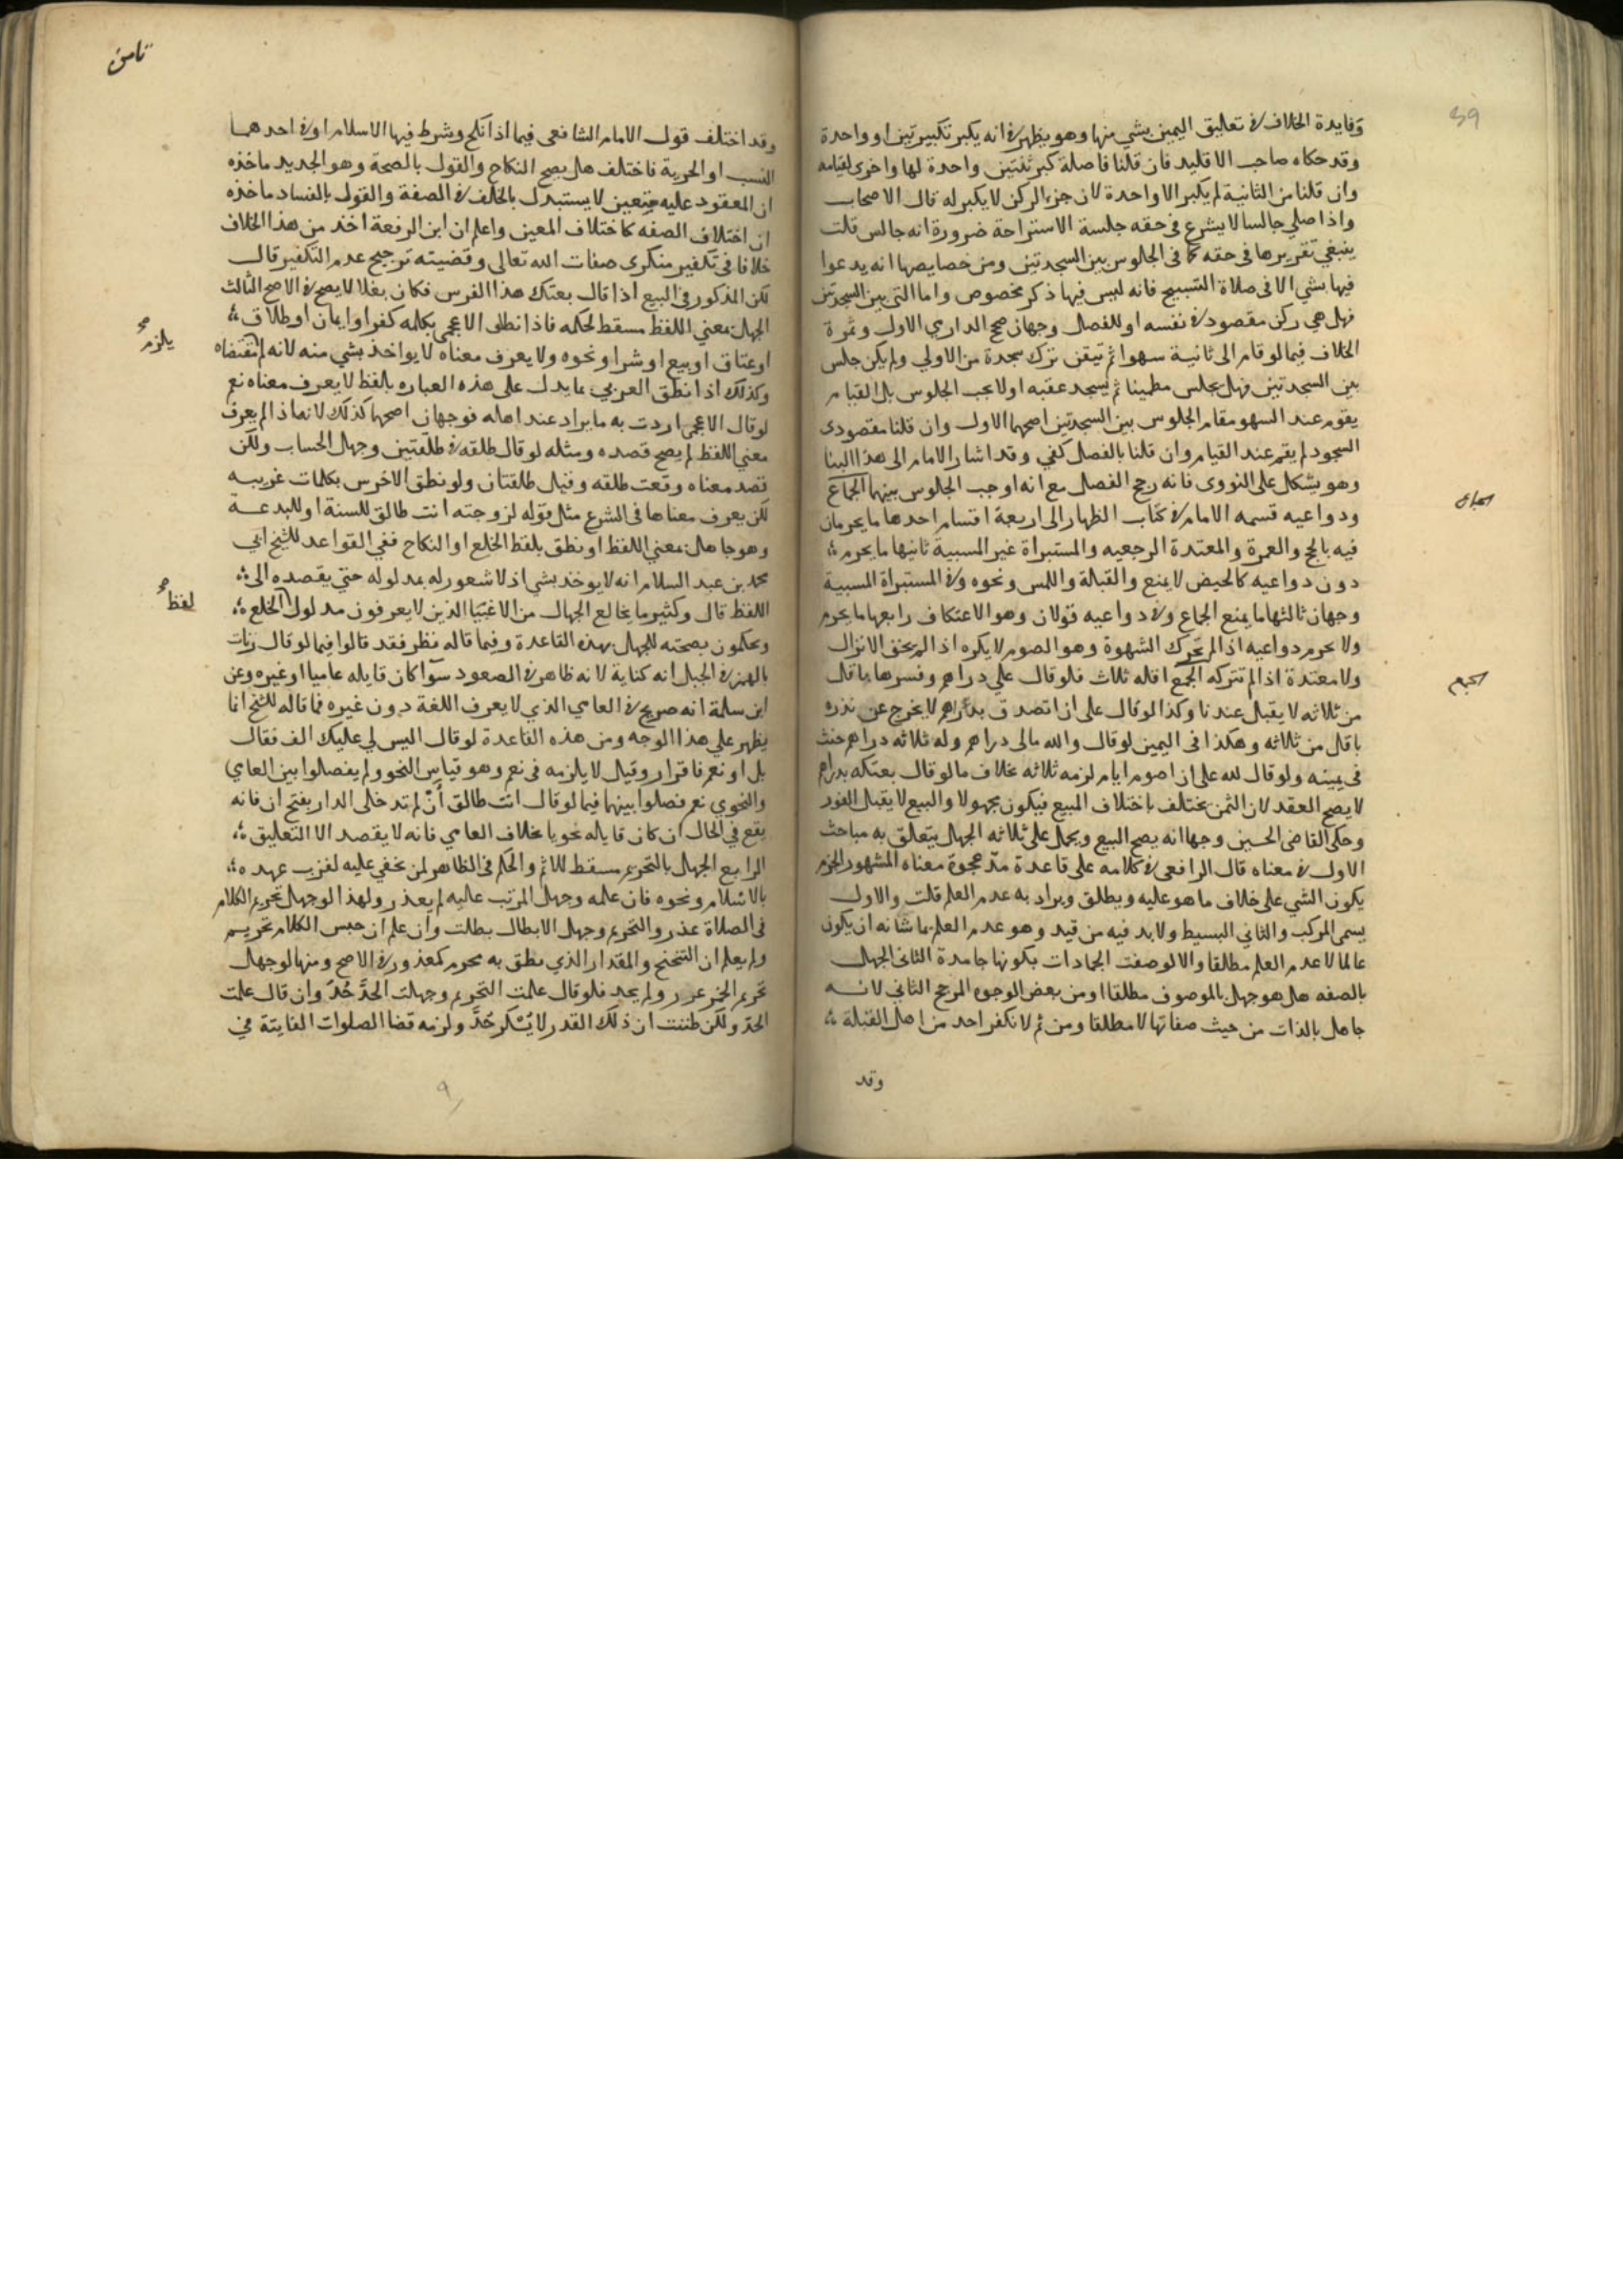 وفايدة الخلاف في تعاليق اليمين بشي منها وهو يظهر في انه يكبر تكبيرتين او واحدة
وقد حكاه صاحب الاقليد فان قلنا فاصلة كبر ثنتين واحدة لها واخرى لقيامه
وان قلنا من الثانية لم يكبر الا واحدة لان جزء الركن لا يكبر له قال الاصحاب
واذا صلي جالسا لا يشرع في حقه جلسة الاستراحة ضرورة انه جالس قلت
ينبغي تقريرها في حقه كما في الجلوس بين السجدتين ومن خصايصها انه يدعوا
فيها بشي الا في صلاة التسبيح فانه ليس فيها ذكر مخصوص واما التي بين السجدتين
فهل هي ركن مقصود في نفسه او للفصل وجهان صحح الدارمي الاول وثمرة
الخلاف فيما لو قام الى ثانية سهوا ثم تيقن ترك سجدة من الاولي ولم يكن جلس
بين السجدتين فهل يجلس مطمينا ثم يسجد عقبه او لا يجب الجلوس بل القيام
يقوم عند السهو مقام الجلوس بين السجدتين اصحهما الاول وان قلنا مقصودى
السجود لم يقم عند القيام وان قلنا بالفصل كفي وقد اشار الامام الى هذا البنا
وهو يشكل على النووى فانه رجح الفصل مع انه اوجب الجلوس بينهما الجماع
الجماع
ودواعيه قسمه الامام في كتاب الظهار الى اربعة اقسام احدها ما يحرمان
فيه بالحج والعمرة والمعتدة الرجعيه والمستبراة غير المسبية ثانيها ما يحرم
دون دواعيه كالحيض لا يمنع والقبلة واللمس ونحوه وفي المستبراة المسبية
وجهان ثالثها ما يمنع الجماع وفي دواعيه قولان وهو الاعتكاف رابعها ما يحرم
ولا يحرم دواعيه اذا لم تحرك الشهوة وهو الصوم لا يكره اذا لم يخف الانزال
ولا معتدة اذا لم تتركه الجمع اقله ثلاث فلو قال علي دراهم وفسرها باقل
الجمع
من ثلاثه لا يقبل عندنا وكذا لو قال على ان اتصدق بدراهم لا يخرج عن نذره
باقل من ثلاثه وهكذا في اليمين لو قال والله مالى دراهم وله ثلاثه دراهم حنث
في يمينه ولو قال لله على ان اصوم اياما لزمه ثلاثه بخلاف ما لو قال بعتكه بدراهم
لا يصح العقد لان الثمن يختلف باختلاف المبيع فيكون مجهولا والبيع لا يقبل الغرر
وحكى القاضى الحسين وجها انه يصح البيع ويحمل على ثلاثه الجهل يتعلق به مباحث
الاول في معناه قال الرافعى في كلامه على قاعدة مد عجوة معناه المشهور الجزم
بكون الشي على خلاف ما هو عليه ويطلق ويراد به عدم العلم قلت والاول
يسمى المركب والثاني البسيط ولا بد فيه من قيد وهو عدم العلم بما شانه ان يكون
عالما لا عدم العلم مطلقا والا لوصفت الجمادات بكونها جامدة الثانى الجهل
بالصفه هل هو جهل بالموصوف مطلقا او من بعض الوجوه المرجح الثاني لانه
جاهل بالذات من حيث صفاتها لا مطلقا ومن ثم لا نكفر احد من اهل القبلة
وقد
ثامن
وقد اختلف قول الامام الشافعى فيما اذا نكح وشرط فيها الاسلام او في احدهما
النسب او الحرية فاختلف هل يصح النكاح والقول بالصحة وهو الجديد ماخذه
ان المعقود عليه متعين لا يستبدل بالخلف في الصفة والقول بالفساد ماخذه
ان اختلاف الصفه كاختلاف المعين واعلم ان ابن الرفعة اخذ من هذا الخلاف
خلافا في تكفير منكري صفات الله تعالى وقضيته ترجيح عدم التكفير قال
لكن المذكور في البيع اذا قال بعتك هذا الفرس فكان بغلا لا يصح في الاصح الثالث
الجهل بمعني اللفظ مسقط لحكمه فاذا نطق الاعجمي بكلمه كفر او ايمان او طلاق
او عتاق او بيع او شرا ونحوه ولا يعرف معناه لا يواخذ بشي منه لانه لم مقتضاه
يلزم
وكذلك اذا نطق العربي بما يدل على هذه العباره بلفظ لا يعرف معناه نعم
لو قال الاعجمى اردت به ما يراد عند اهله فوجهان اصحهما كذلك لانه اذا لم يعرف
معني اللفظ لم يصح قصده ومثله لو قال طلقه في طلقتين وجهل الحساب ولكن
قصد معناه وقعت طلقه وقيل طلقتان ولو نطق الاخرس بكلمات غريبه
لكن يعرف معناها في الشرع مثل قوله لزوجته انت طالق للسنة او للبدعة
وهو جاهل بمعني اللفظ او نطق بلفظ الخلع او النكاح ففي القواعد للشيخ ابي
محمد بن عبد السلام انه لا يوخذ بشي اذ لا شعور له بمدلوله حتي يقصده الى
اللفظ قال وكثير ما يخالع الجهال من الاغبيا الذين لا يعرفون مدلول الخلع
لفظ
ويحكمون بصحته للجهل بهذه القاعدة وفيما قاله نظر فقد قالوا فيما لو قال زنات
بالهمز في الجبل انه كناية لانه ظاهر في الصعود سوآ كان قايله عاميا او غيره وعن
ابن سلمة انه صريح في العامي الذي لا يعرف اللغة دون غيره فما قاله الشيخ انما
يظهر علي هذا الوجه ومن هذه القاعدة لو قال اليس لي عليك الف فقال
بل او نعم فاقرار وقيل لا يلزمه في نعم وهو قياس النحو ولم يفصلوا بين العامي
والنحوي نعم فصلوا بينهما فيما لو قال انت طالق أن لم تدخلى الدار بفتح ان فانه
يقع في الحال ان كان قايله نحويا بخلاف العامي فانه لا يقصد الا التعليق
الرابع الجهل بالتحريم مسقط للاثم والحكم فى الظاهر لمن يخفي عليه لقرب عهده
بالاسلام ونحوه فان علمه وجهل المرتب عليه لم يعذر ولهذا لو جهل تحريم الكلام
في الصلاة عذر والتحريم وجهل الابطال بطلت وان علم ان جنس الكلام تحريم
ولم يعلم ان التنحنح والمقدار الذي نطق به محرم كمعذور في الاصح ومنها لو جهل
تحريم الخمر عذر ولم يحد فلو قال علمت التحريم وجهلت الحدّ حُدّ وان قال علمت
الحدّ ولكن ظننت ان ذلك القدر لا يُسْكر حُدّ ولزمه قضا الصلوات الفايتة في